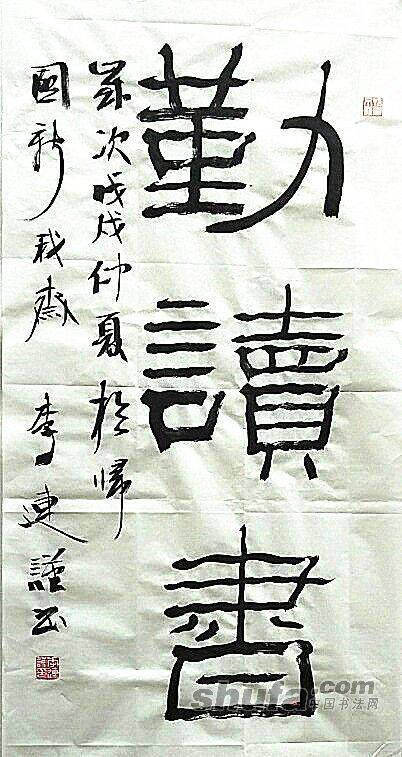 勤讀書
歲次戊戌仲夏於歸
園新我齋 李連謹書
shufa.com
中国书法网